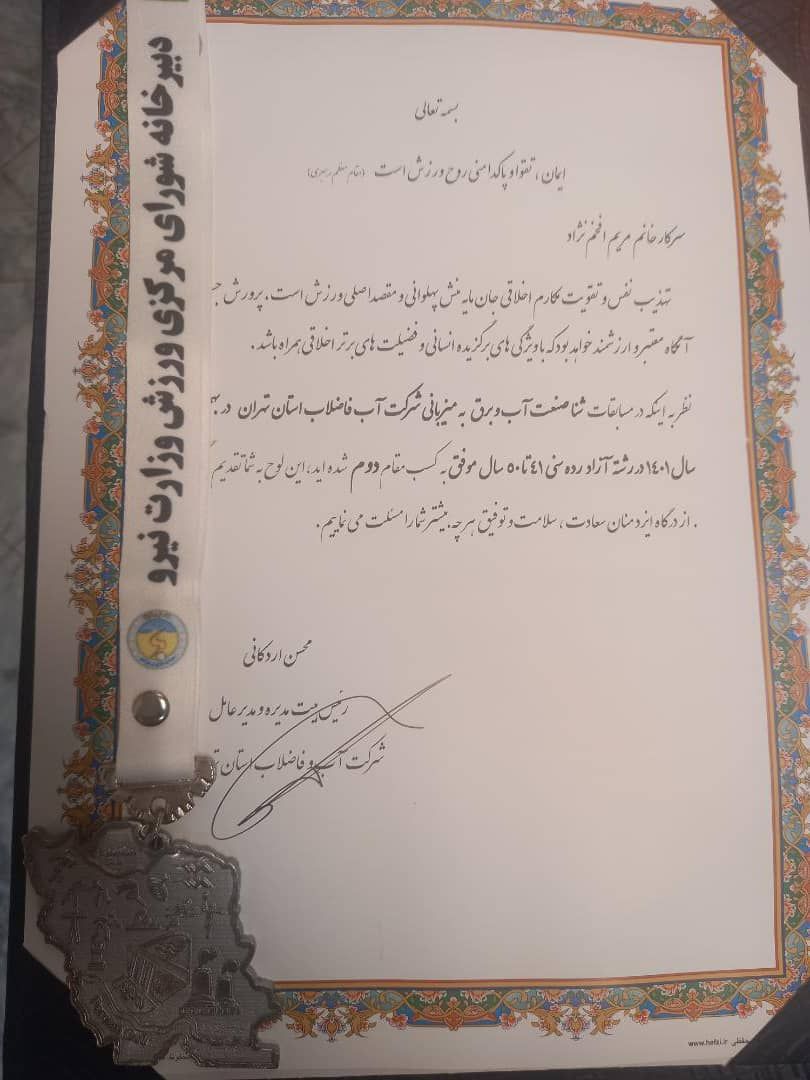 دبیرخانه شورای مرکزی ورزش وزارت نیرو
بسمه تعالی
ایمان، تقوا و پاکدامنی روح ورزش است (مقام معظم رهبری)
سرکار خانم مریم افخم نژاد
تهذیب نفس و تقویت مکارم اخلاقی جان مایه منش پهلوانی و مقصد اصلی ورزش است، پرورش
آنگاه معتبر و ارزشمند خواهد بود که با ویژگی های برگزیده انسانی و فضیلت های برتر اخلاقی همراه باشد.
نظر به اینکه در مسابقات شنا صنعت آب و برق به میزبانی شرکت آب فاضلاب استان تهران در
سال ۱۴۰۱ در رشته آزاد رده سنی ۴۱ تا ۵۰ سال موفق به کسب مقام دوم شده اید، این لوح به شما تقدیم
. از درگاه ایزد منان سعادت، سلامت و توفیق هرچه بیشتر شما را مسئلت می نماییم.
محسن اردکانی
رئیس هیئت مدیره و مدیرعامل
شرکت آب و فاضلاب استان
www.hafzi.ir